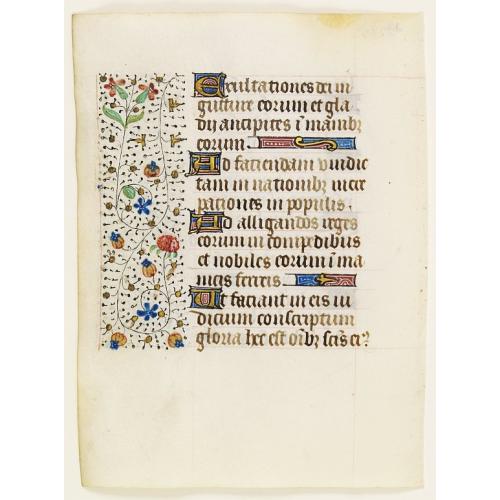 Exultationes dei in
gutture eorum et gla
dii ancipites ī manibꝫ
eorum
Ad faciendam vindic
tam in nationibꝫ incre
pationes in populis
Ad alligandos reges
eorum in compedibus
et nobiles eorum ī ma
nicis ferreis
Ut faciant in eis iu
dicium conscriptum
gloria hec est oībꝫ scīs eiꝰ